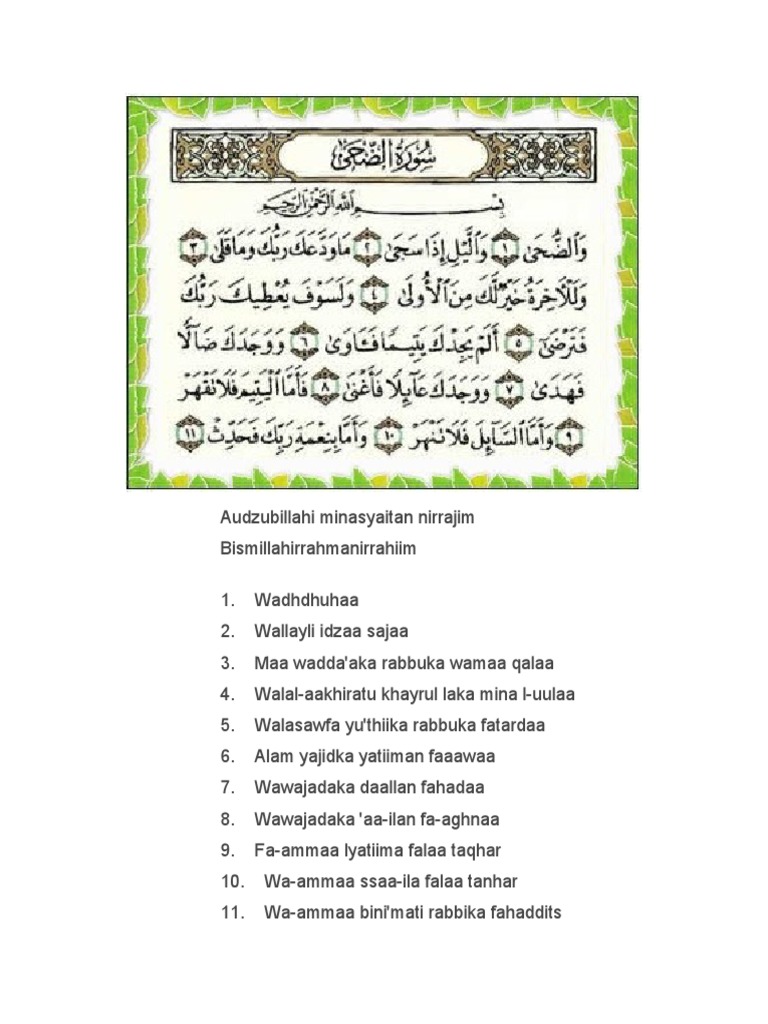 سُورَةُ الضُّحَىٰ
بِسْمِ اللَّهِ الرَّحْمَٰنِ الرَّحِيمِ
وَٱلضُّحَىٰ ١ وَٱلَّيْلِ إِذَا سَجَىٰ ٢ مَا وَدَّعَكَ رَبُّكَ وَمَا قَلَىٰ ٣
وَلَلْءَاخِرَةُ خَيْرٌ لَّكَ مِنَ ٱلْأُولَىٰ ٤ وَلَسَوْفَ يُعْطِيكَ رَبُّكَ
فَتَرْضَىٰٓ ٥ أَلَمْ يَجِدْكَ يَتِيمًا فَـَٔاوَىٰ ٦ وَوَجَدَكَ ضَآلًّا
فَهَدَىٰ ٧ وَوَجَدَكَ عَآئِلًا فَأَغْنَىٰ ٨ فَأَمَّا ٱلْيَتِيمَ فَلَا تَقْهَرْ
٩ وَأَمَّا ٱلسَّآئِلَ فَلَا تَنْهَرْ ١٠ وَأَمَّا بِنِعْمَةِ رَبِّكَ فَحَدِّثْ ١١
Audzubillahi minasyaitan nirrajim
Bismillahirrahmanirrahiim
1. Wadhdhuhaa
2. Wallayli idzaa sajaa
3. Maa wadda'aka rabbuka wamaa qalaa
4. Walal-aakhiratu khayrul laka mina l-uulaa
5. Walasawfa yu'thiika rabbuka fatardaa
6. Alam yajidka yatiiman faaawaa
7. Wawajadaka daallan fahadaa
8. Wawajadaka 'aa-ilan fa-aghnaa
9. Fa-ammaa lyatiima falaa taqhar
10. Wa-ammaa ssaa-ila falaa tanhar
11. Wa-ammaa bini'mati rabbika fahaddits